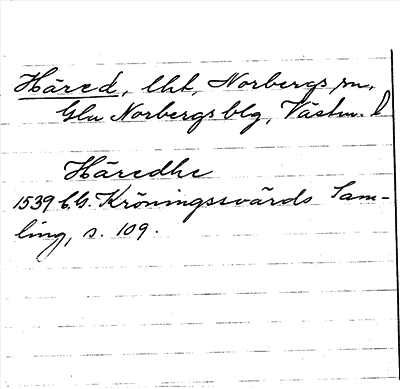 Häred, lht, Norbergs sn,
Gla Norbergs blg, Västm. l
Häredhe
1539 C.G. Kröningssvärds Sam-
ling, s. 109.